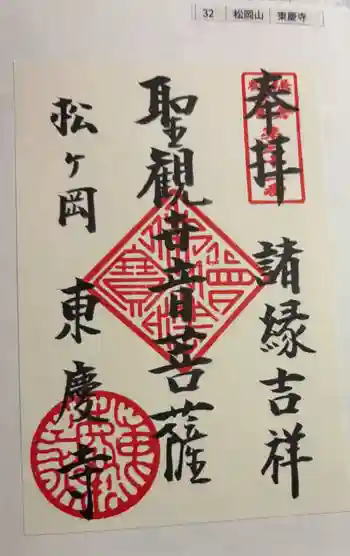 32 松岡山 東慶寺
奉拝 諸縁吉祥
聖観世音菩薩
松ヶ岡 東慶寺